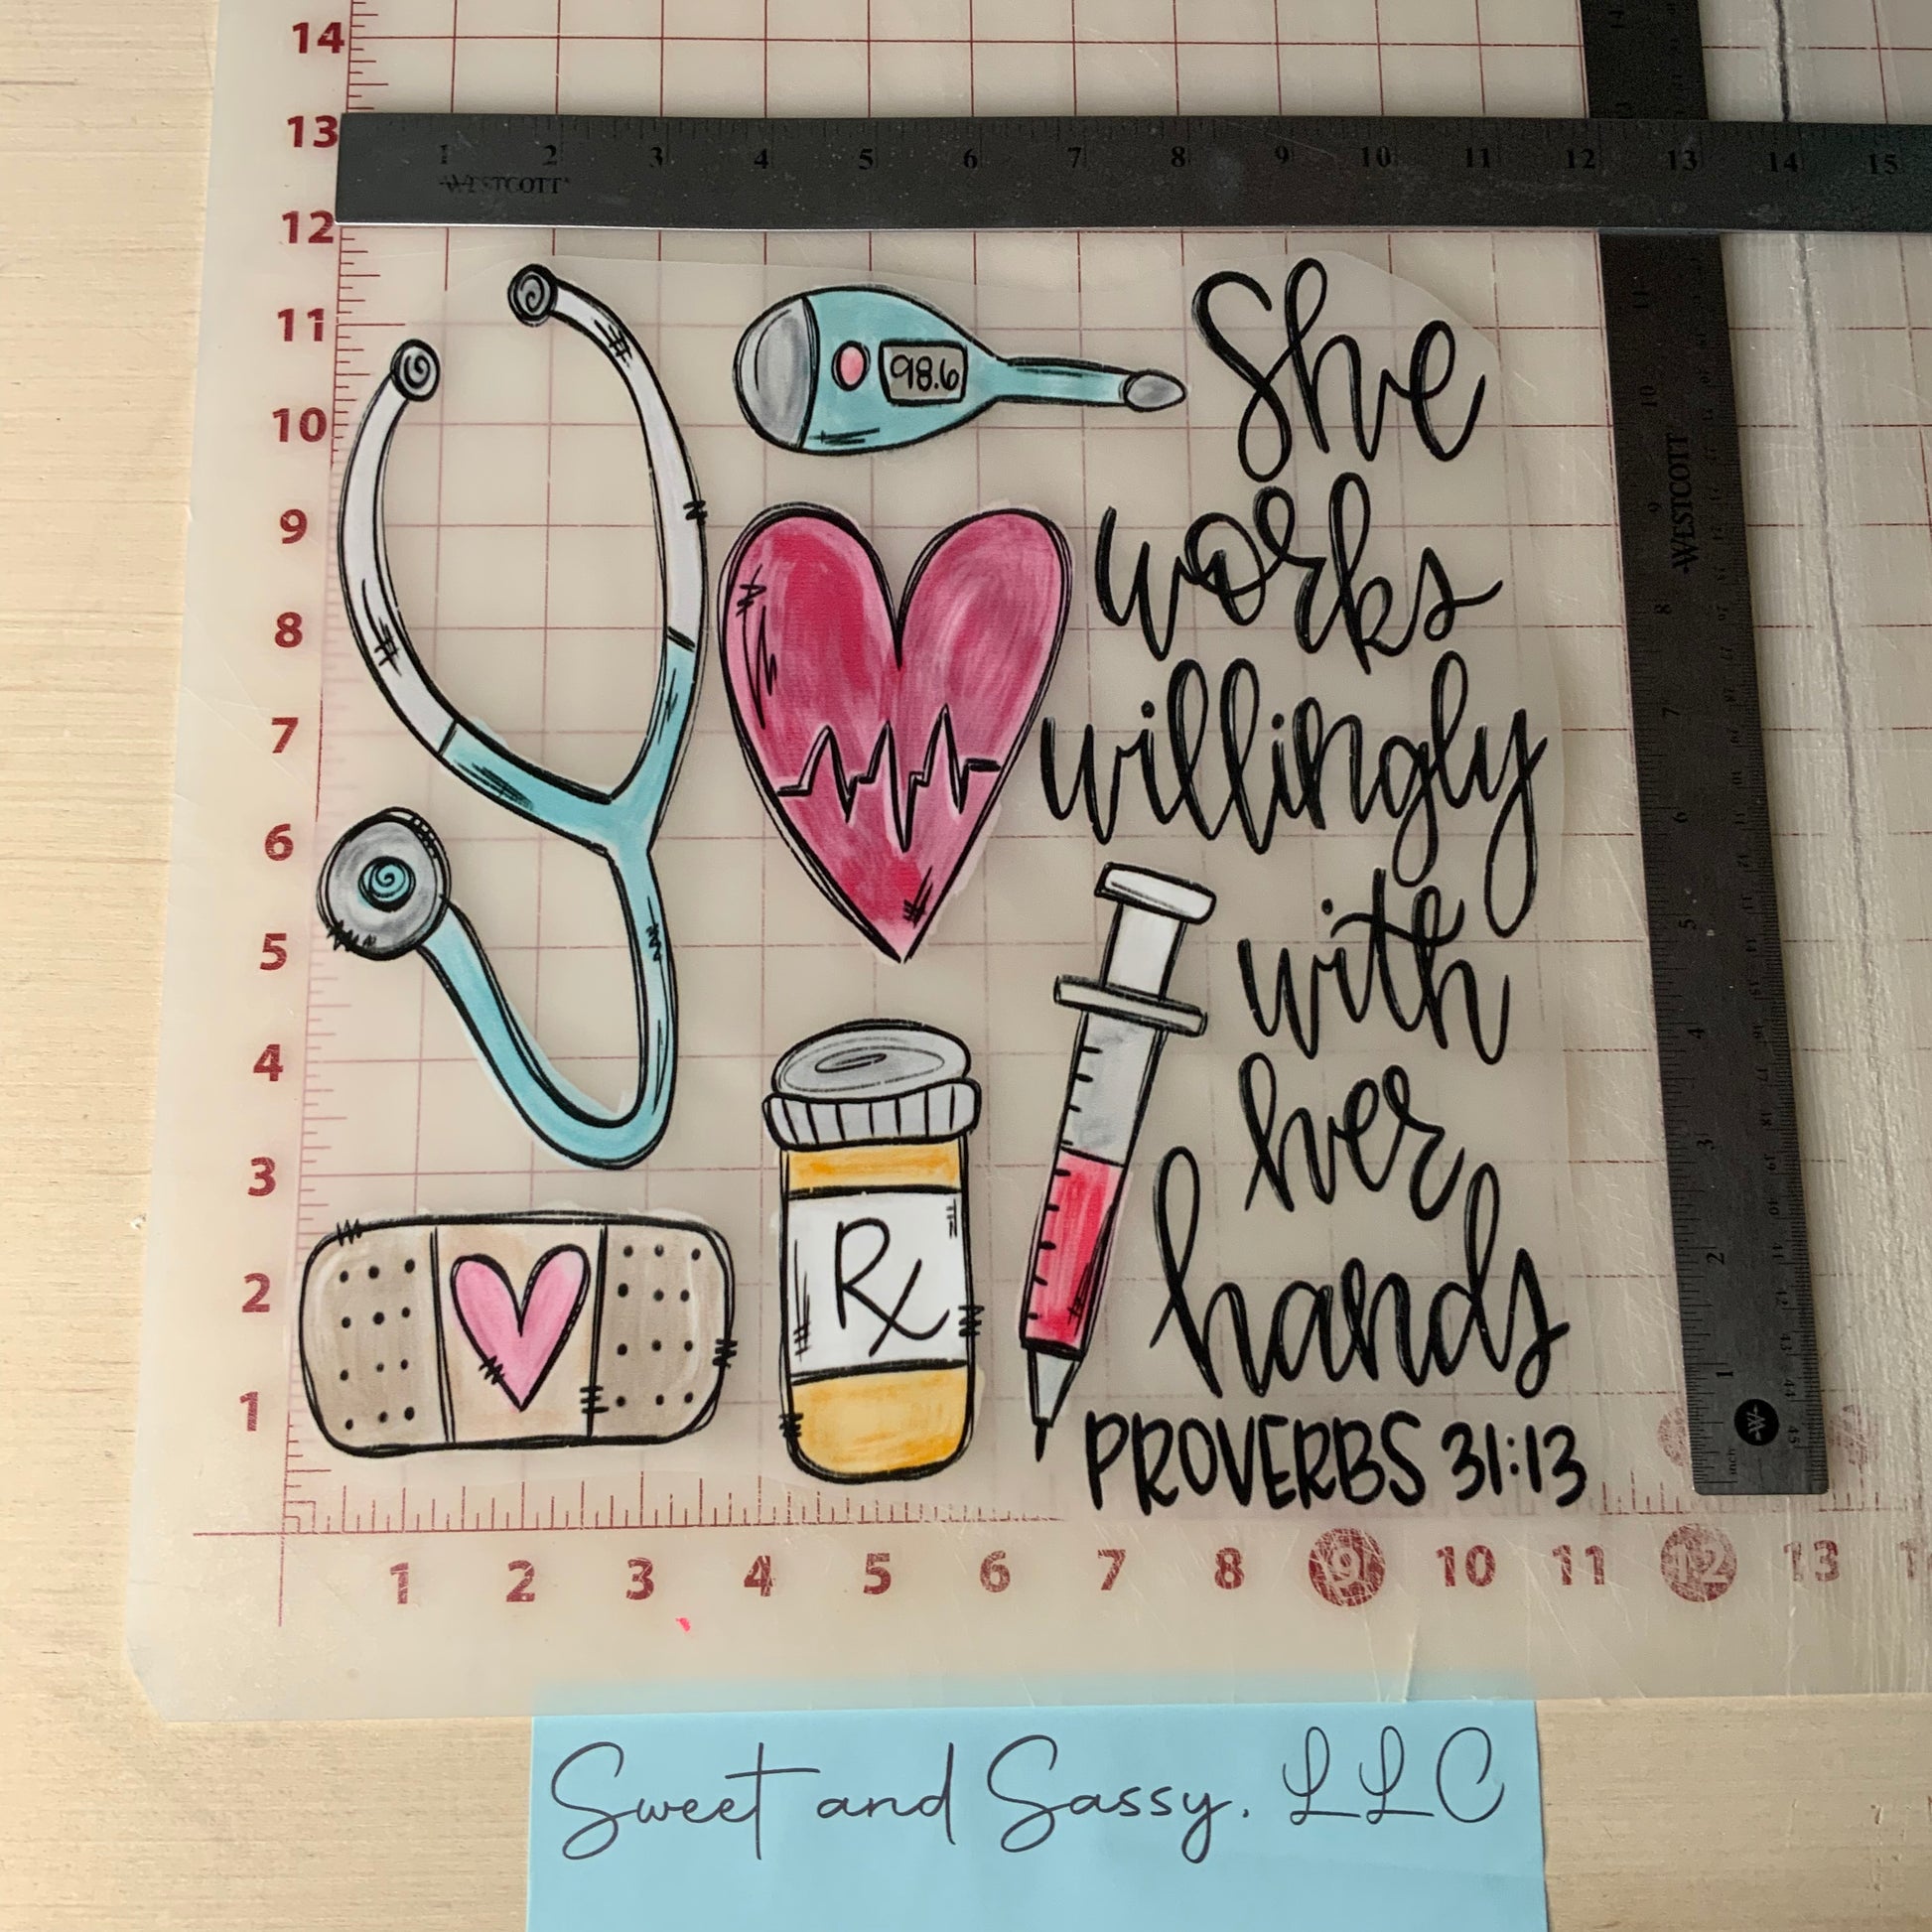 14
13
1 2 3 4 5 6 7 8 9 10 11 12 13 14 15
WESTCOTT
12
11
10
9
8
7
6
5
4
3
2
1
98.6
She
works
willingly
with
her
hands
PROVERBS 31:13
Rx
11
10
9
WESTCOTT
8
7
6
5
4
3
2
1
1 2 3 4 5 6 7 8 9 10 11 12 13
Sweet and Sassy, LLC